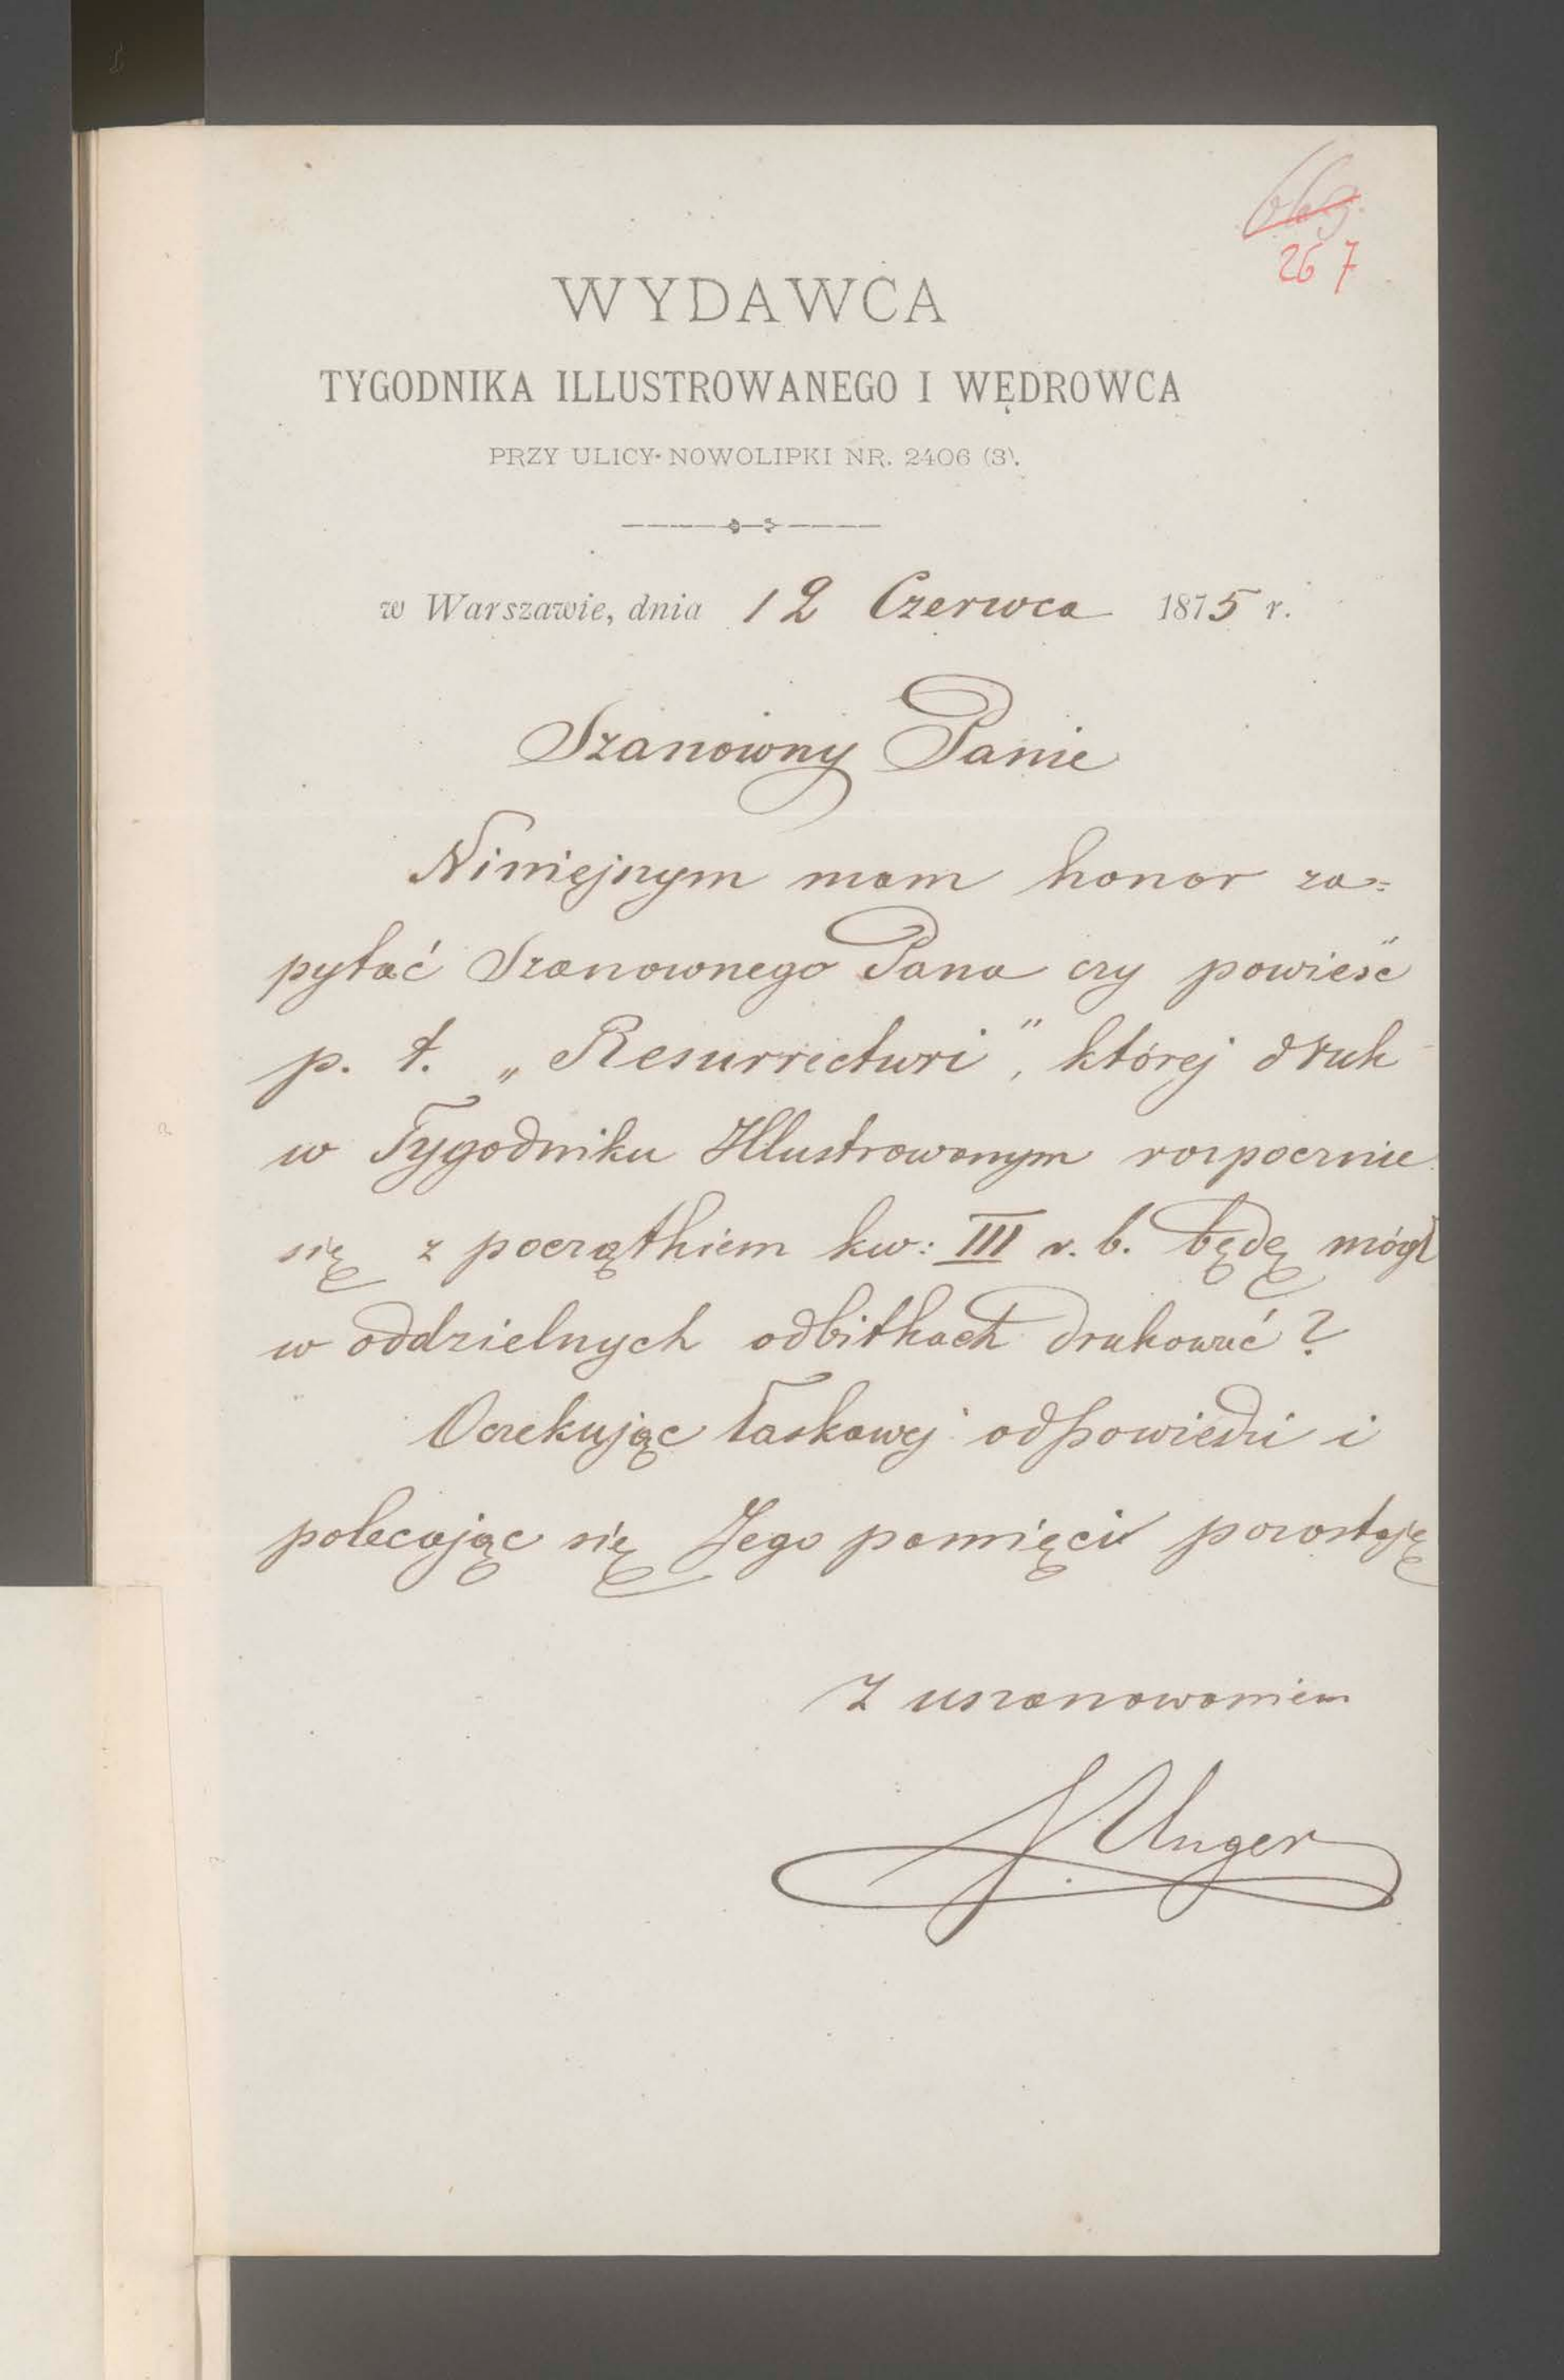 267
WYDAWCA
TYGODNIKA ILLUSTROWANEGO I WĘDROWCA
PRZY ULICY NOWOLIPKI NR. 2406 (3).
w Warszawie, dnia 12 Czerwca 1875 r.
Szanowny Panie
Niniejszym mam honor za=
pytać Szanownego Pana czy powieść
p. t. „Resurrecturi", której druk
w Tygodniku Illustrowanym rozpocznie
się z początkiem kw: III r. b. będę mógł
w oddzielnych odbitkach drukować?
Oczekując łaskawej odpowiedzi i
polecając się Jego pamięci pozostaję
Z uszanowaniem
Unger